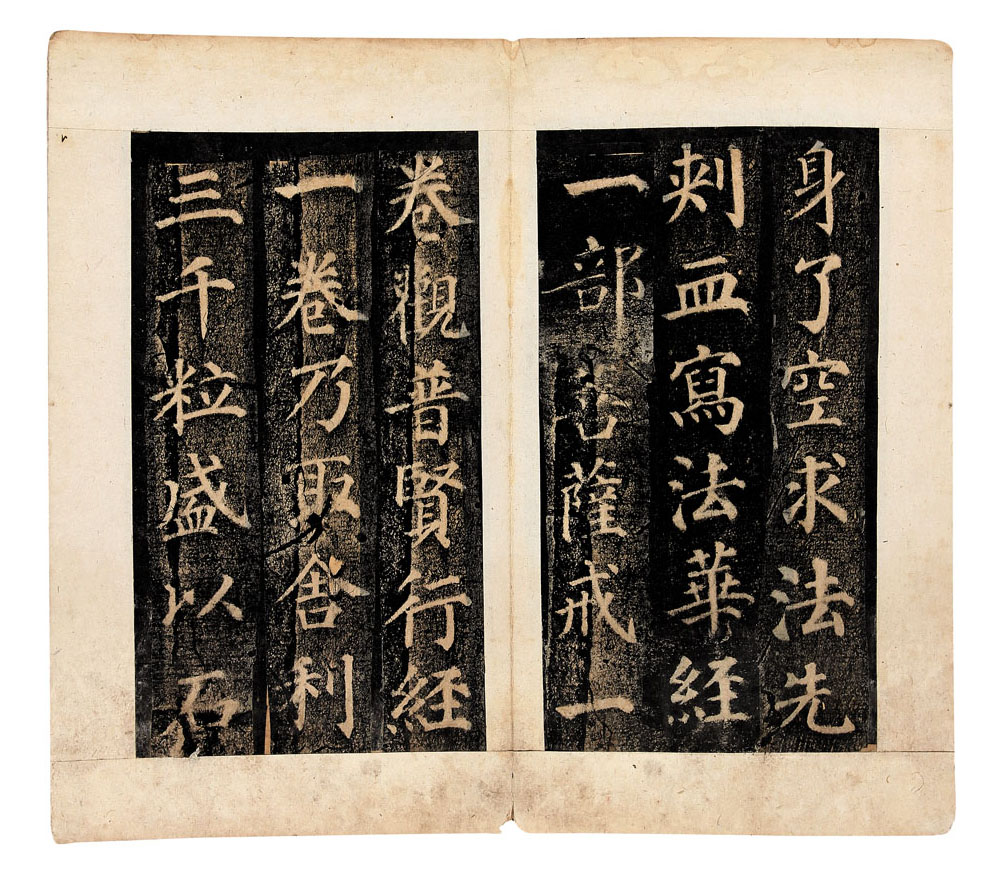 身了空求法先
刺血寫法華經
一部菩薩戒一
卷觀普賢行經
一卷乃取舍利
三千粒盛以石